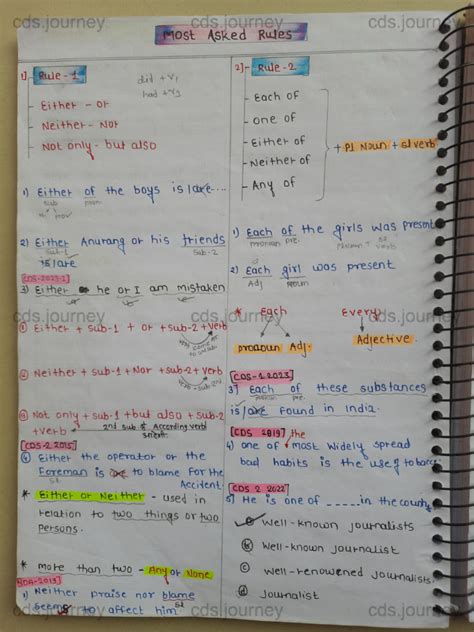 cds.journey cds.journey cds.journey
Most Asked Rules
1]- Rule - 1
did + v1
had + v3
Either - or
Neither - Nor
Not only - but also
1) Either of the boys is/are....
sub
pron
prep
2) Either Anurang or his friends
sub-1
sub-2
is/are
CDS-2023-2
3) Either he or I am mistaken
cds.journey cds.journey cds.journey
Either + sub-1 + or + sub-2 + verb
Neither + sub-1 + Nor + sub-2 + verb
verb
Not only + sub-1 + but also + sub-2
+ verb
2nd sub. According verb
CDS-2 2015
④ Either the operator or the
Foreman is are to blame for the
S1
Accident.
* Either or Neither - used in
relation to two things or two
persons.
* more than two - Any or None
NDA-2013
1) Neither praise nor blame
S2
seems to affect him
2]- Rule - 2
Each of
one of
Either of
Neither of
Any of
+ Pl Noun + si verb
1) Each of the girls was present
pronoun pre.
verb
2) Each girl was present
Adj noun
* Each Every
pronoun Adj. Adjective
CDS-1 2023
3] Each of these substances
pronoun pre
is/are found in India.
CDS 2019
the
4) one of most widely spread
bad habits is the use of tobacco
CDS 2 2022
5] He is one of _____ in the country
ⓐ well-known journalists
ⓑ well-known journalist
ⓒ well-renowened journalists
ⓓ journalist
cds.journey cds.journey cds.journey